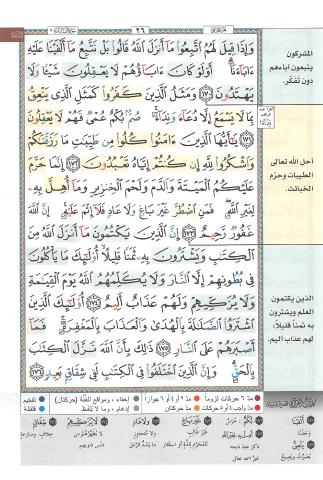 ٢٦
وَإِذَا قِيلَ لَهُمُ ٱتَّبِعُوا۟ مَآ أَنزَلَ ٱللَّهُ قَالُوا۟ بَلْ نَتَّبِعُ مَآ أَلْفَيْنَا عَلَيْهِ
ءَابَآءَنَآ أَوَلَوْ كَانَ ءَابَآؤُهُمْ لَا يَعْقِلُونَ شَيْـًٔا وَلَا
يَهْتَدُونَ ١٧٠ وَمَثَلُ ٱلَّذِينَ كَفَرُوا۟ كَمَثَلِ ٱلَّذِى يَنْعِقُ
بِمَا لَا يَسْمَعُ إِلَّا دُعَآءً وَنِدَآءً صُمٌّۢ بُكْمٌ عُمْىٌ فَهُمْ لَا يَعْقِلُونَ
١٧١ يَـٰٓأَيُّهَا ٱلَّذِينَ ءَامَنُوا۟ كُلُوا۟ مِن طَيِّبَـٰتِ مَا رَزَقْنَـٰكُمْ
وَٱشْكُرُوا۟ لِلَّهِ إِن كُنتُمْ إِيَّاهُ تَعْبُدُونَ ١٧٢ إِنَّمَا حَرَّمَ
عَلَيْكُمُ ٱلْمَيْتَةَ وَٱلدَّمَ وَلَحْمَ ٱلْخِنزِيرِ وَمَآ أُهِلَّ بِهِۦ
لِغَيْرِ ٱللَّهِ فَمَنِ ٱضْطُرَّ غَيْرَ بَاغٍ وَلَا عَادٍ فَلَآ إِثْمَ عَلَيْهِ إِنَّ ٱللَّهَ
غَفُورٌ رَّحِيمٌ ١٧٣ إِنَّ ٱلَّذِينَ يَكْتُمُونَ مَآ أَنزَلَ ٱللَّهُ مِنَ
ٱلْكِتَـٰبِ وَيَشْتَرُونَ بِهِۦ ثَمَنًا قَلِيلًا أُو۟لَـٰٓئِكَ مَا يَأْكُلُونَ
فِى بُطُونِهِمْ إِلَّا ٱلنَّارَ وَلَا يُكَلِّمُهُمُ ٱللَّهُ يَوْمَ ٱلْقِيَـٰمَةِ
وَلَا يُزَكِّيهِمْ وَلَهُمْ عَذَابٌ أَلِيمٌ ١٧٤ أُو۟لَـٰٓئِكَ ٱلَّذِينَ
ٱشْتَرَوُا۟ ٱلضَّلَـٰلَةَ بِٱلْهُدَىٰ وَٱلْعَذَابَ بِٱلْمَغْفِرَةِ فَمَآ
أَصْبَرَهُمْ عَلَى ٱلنَّارِ ١٧٥ ذَٰلِكَ بِأَنَّ ٱللَّهَ نَزَّلَ ٱلْكِتَـٰبَ
بِٱلْحَقِّ وَإِنَّ ٱلَّذِينَ ٱخْتَلَفُوا۟ فِى ٱلْكِتَـٰبِ لَفِى شِقَاقٍۭ بَعِيدٍ ١٧٦
المشركون
يتبعون آباءهم
دون تفكّر.
أحل الله تعالى
الطيبات وحرّم
الخبائث.
الذين يكتمون
العلم ويشترون
به ثمناً قليلاً،
لهم عذاب أليم.
مدّ ٦ حركات لزوماً مدّ ٢ أو ٤ أو ٦ جوازاً إخفاء، ومواقع الغُنّة (حركتان) تفخيم
مدّ واجب ٤ أو ٥ حركات مدّ حركتان إدغام، وما لا يُلفظ قلقلة